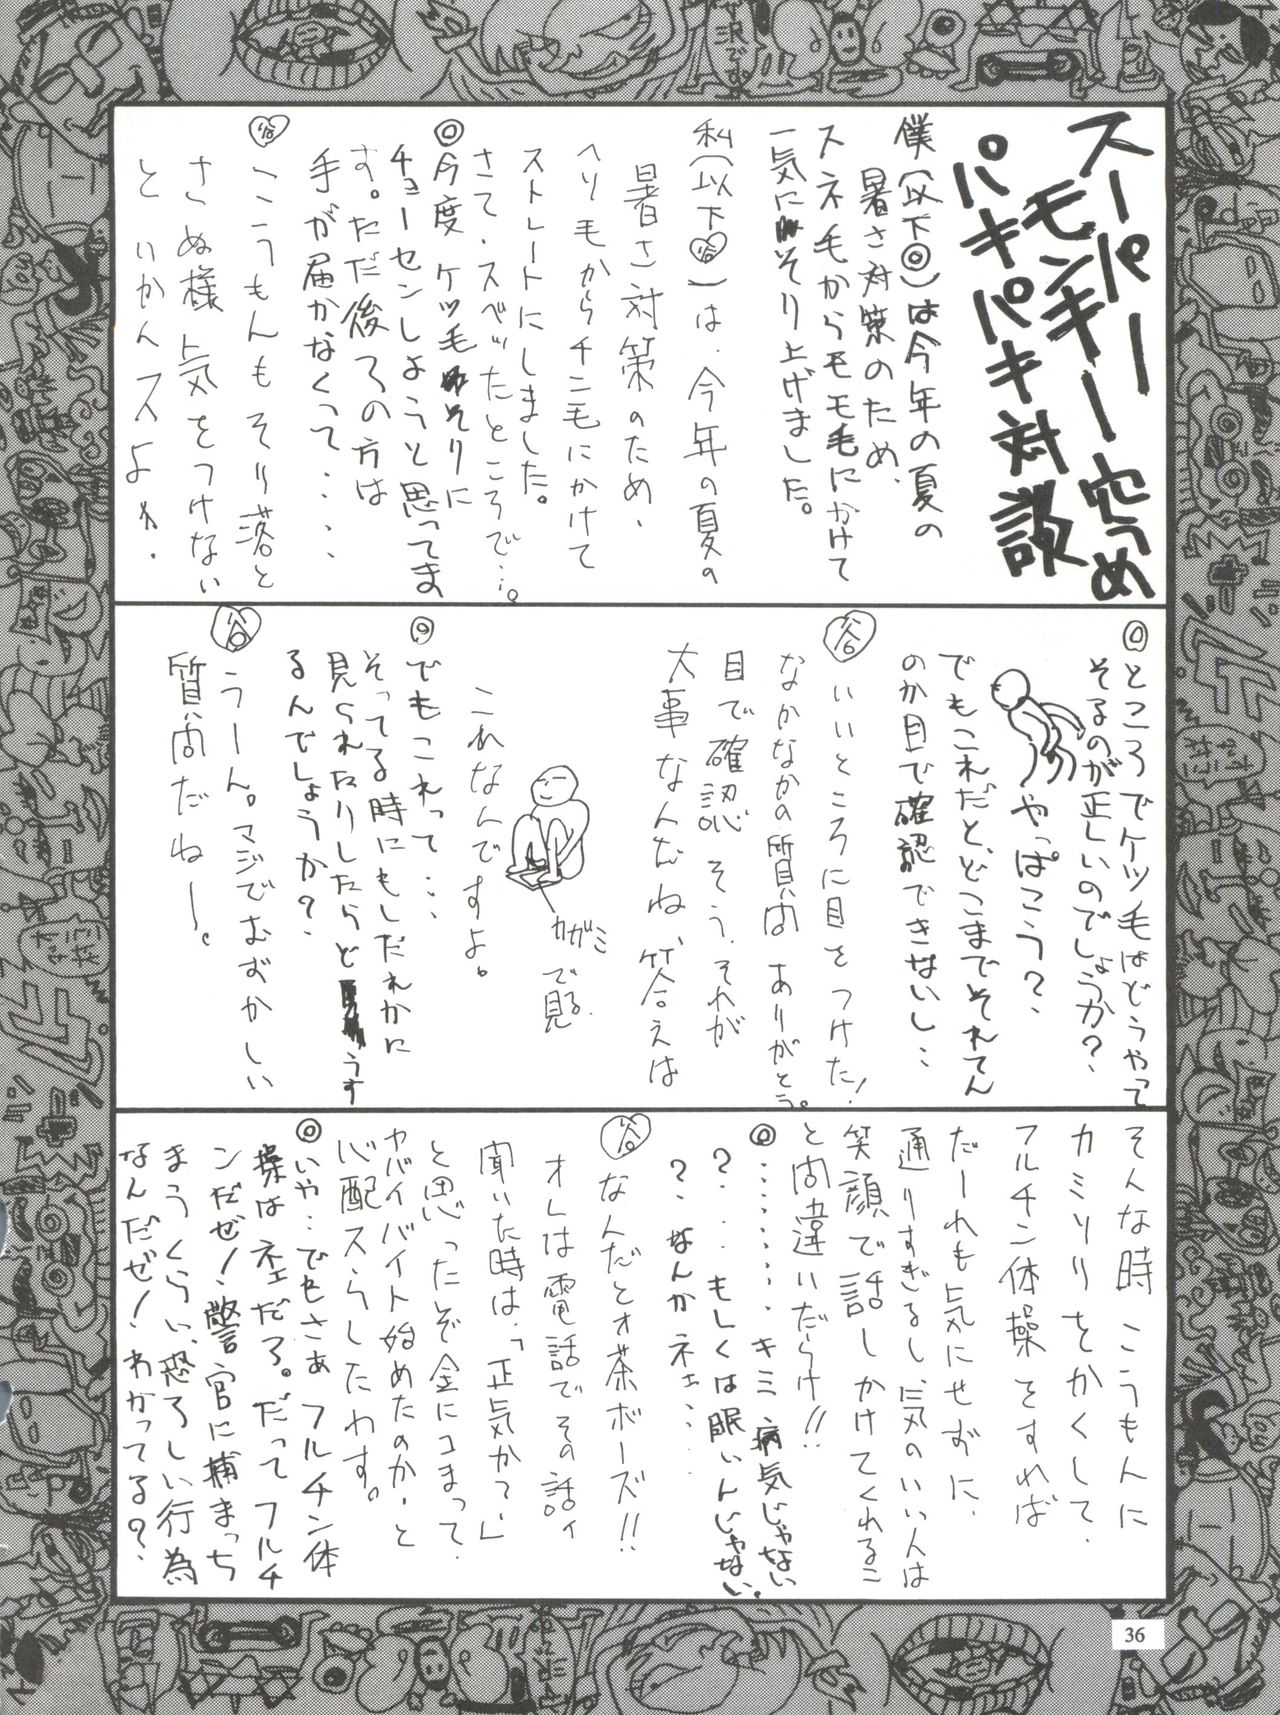 スーパー
モンキー穴うめ
パキパキ対談
僕(以下◎)は今年の夏の
暑さ対策のため、
スネ毛からモモ毛にかけて
一気にそり上げました。
私(以下谷)は、今年の夏の
暑さ対策のため、
ヘソ毛からチン毛にかけて
ストレートにしました。
さて、スベッたところで…。
◎今度ケツ毛そりに
チョーセンしようと思ってま
す。ただ後ろの方は
手が届かなくって・・・・
谷 こうもんもそり落と
さぬ様気をつけない
といかんスよ
◎ところでケツ毛はどうやって
そるのが正しいのでしょうか?
やっぱこう?、
でもこれだと、どこまでそれてん
のか目で確認できないし…
谷 いいところに目をつけた!
なかなかの質問ありがとう。
目で確認そう、それが
大事なんだね、答えは
これなんですよ。
カガミ
で見る
◎でもこれって…
そってる時にもしだれかに
見られたりしたらどうす
るんでしょうか?
谷 うーん。マジでむずかしい
質問だねー。
そんな時こうもんに
カミソリをかくして、
フルチン体操をすれば
だーれも気にせずに、
通りすぎるし、気のいい人は
笑顔で話しかけてくれるこ
と間違いだらけ!!
◎・・・・・・・キミ病気じゃない
?・・もしくは眠いんじゃない。
?、なんかネェ…
谷 なんだとオ茶ボーズ!!
オレは電話でその話ィ
聞いた時は、「正気かァ」
と思ったぞ金にコマって
ヤバイバイト始めたのか、と
心配スらしたわす。
◎いや…でもさぁフルチン体
操はネェだろ。だってフルチ
ンだぜ!警官に捕まっち
まうくらい、恐ろしい行為
なんだぜ!わかってる?、
36